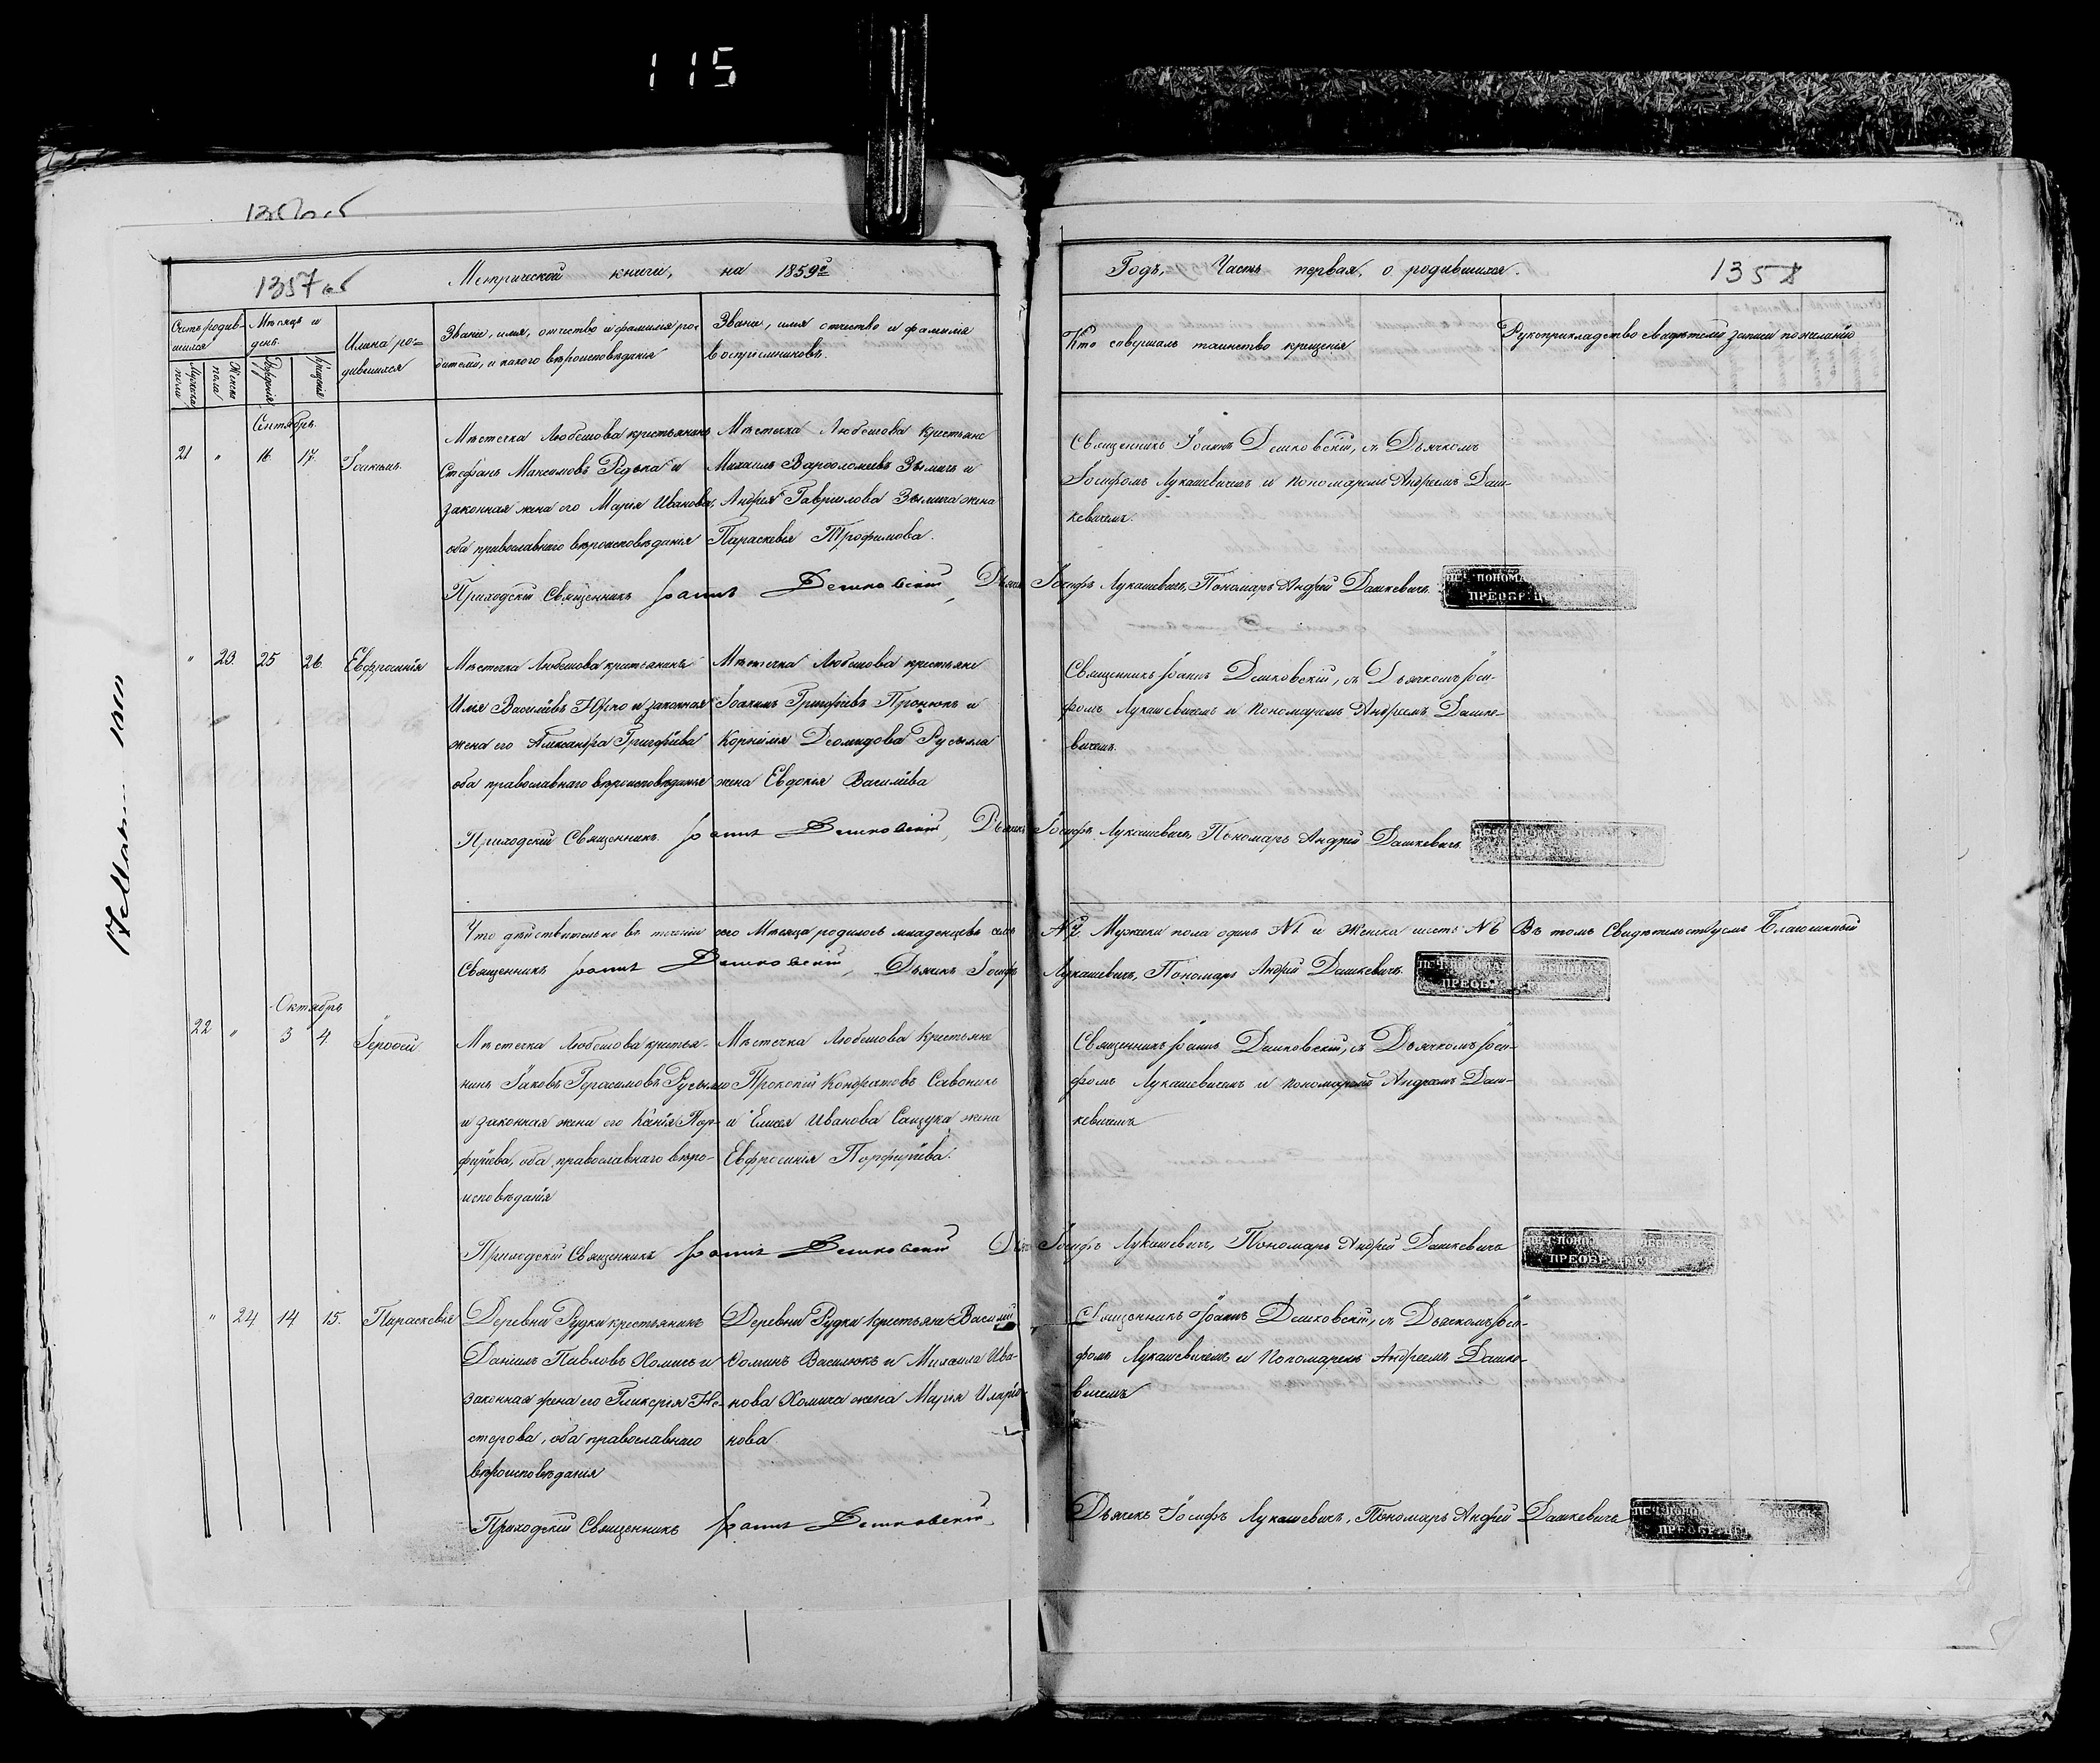 115
1357 об
Метрической книги, на 1859й
Годъ, Часть первая, о родившихся.
1358
Счетъ родив-
шихся
Мужеска пола
Женска пола
Мѣсяцъ и
день.
Рожденія
Крещенія
Имена ро-
дившихся
Званіе, имя, отчество и фамилія ро-
дителей, и какого вѣроисповѣданія
Званіе, имя отчество и фамилія
воспріемниковъ.
Кто совершалъ таинство крещенія
Рукоприкладство свидѣтелей записи по желанію
Сентябрь.
21 " 16 17. Іоакимъ.
Мѣстечка Любешова крестьянинъ
Стефанъ Максимовъ Редька и
законная жена его Марія Иванова,
оба православнаго вѣроисповѣданія
Мѣстечка Любешова крестьяне
Михаилъ Варѳоломеевъ Зымичъ и
Андрея Гавріилова Зымича жена
Параскевія Трофимова.
Священникъ Іоаннъ Дешковскій, съ Дьячкомъ
Іосифомъ Лукашевичемъ и пономаремъ Андреемъ Даш-
кевичемъ.
Приходскій Священникъ Іоаннъ Дешковскій, Дьячекъ Іосифъ Лукашевичъ, Пономарь Андрей Дашкевичъ.
" 23. 25 26 Евфросинія
Мѣстечка Любешова крестьянинъ
Илія Василіевъ Юрко и законная
жена его Александра Григоріева
оба православнаго вѣроисповѣданія
Мѣстечка Любешова крестьяне
Іоакимъ Григоріевъ Пронюкъ и
Корнилія Деомидова Русыла
жена Евдокія Василіева
Священникъ Іоаннъ Дешковскій, съ Дьячкомъ Іоси-
фомъ Лукашевичемъ и пономаремъ Андреемъ Дашке-
вичемъ.
Приходскій Священникъ Іоаннъ Дешковскій, Дьячекъ Іосифъ Лукашевичъ, Пономарь Андрей Дашкевичъ.
Что дѣйствительно въ теченіи сего Мѣсяца родилось младенцевъ семь №7. Мужеска пола одинъ №1 и Женска шесть №6 Въ томъ Свидѣтельствуемъ Благочинный
Священникъ Іоаннъ Дешковскій, Дьячекъ Іосифъ Лукашевичъ, Пономарь Андрей Дашкевичъ.
Октябрь
22 " 3 4 Іероѳей
Мѣстечка Любешова крестья-
нинъ Іаковъ Герасимовъ Русыло
и законная жена его Ксенія Пор-
фиріева, оба православнаго вѣро-
исповѣданія
Мѣстечка Любешова крестьяне
Прокопій Кондратовъ Савоникъ
и Елисея Иванова Сацука жена
Евфросинія Порфиріева.
Священникъ Іоаннъ Дешковскій, съ Дьячкомъ Іоси-
фомъ Лукашевичемъ и пономаремъ Андреемъ Даш-
кевичемъ
Приходскій Священникъ Іоаннъ Дешковскій Дьячекъ Іосифъ Лукашевичъ, Пономарь Андрей Дашкевичъ
" 24 14 15. Параскевія
Деревни Рудки крестьянинъ
Даніилъ Павловъ Хомичъ и
законная жена его Гликерія Не-
стерова, оба православнаго
вѣроисповѣданія
Деревни Рудки крестьяне Василій
Ѳоминъ Василюкъ и Михаила Ива-
нова Хомича жена Марія Иларіо-
нова
Священникъ Іоаннъ Дешковскій, съ Дьячкомъ Іоси-
фомъ Лукашевичемъ и пономаремъ Андреемъ Дашке-
вичемъ
Приходскій Священникъ Іоаннъ Дешковскій.
Дьячекъ Іосифъ Лукашевичъ, Пономарь Андрей Дашкевичъ